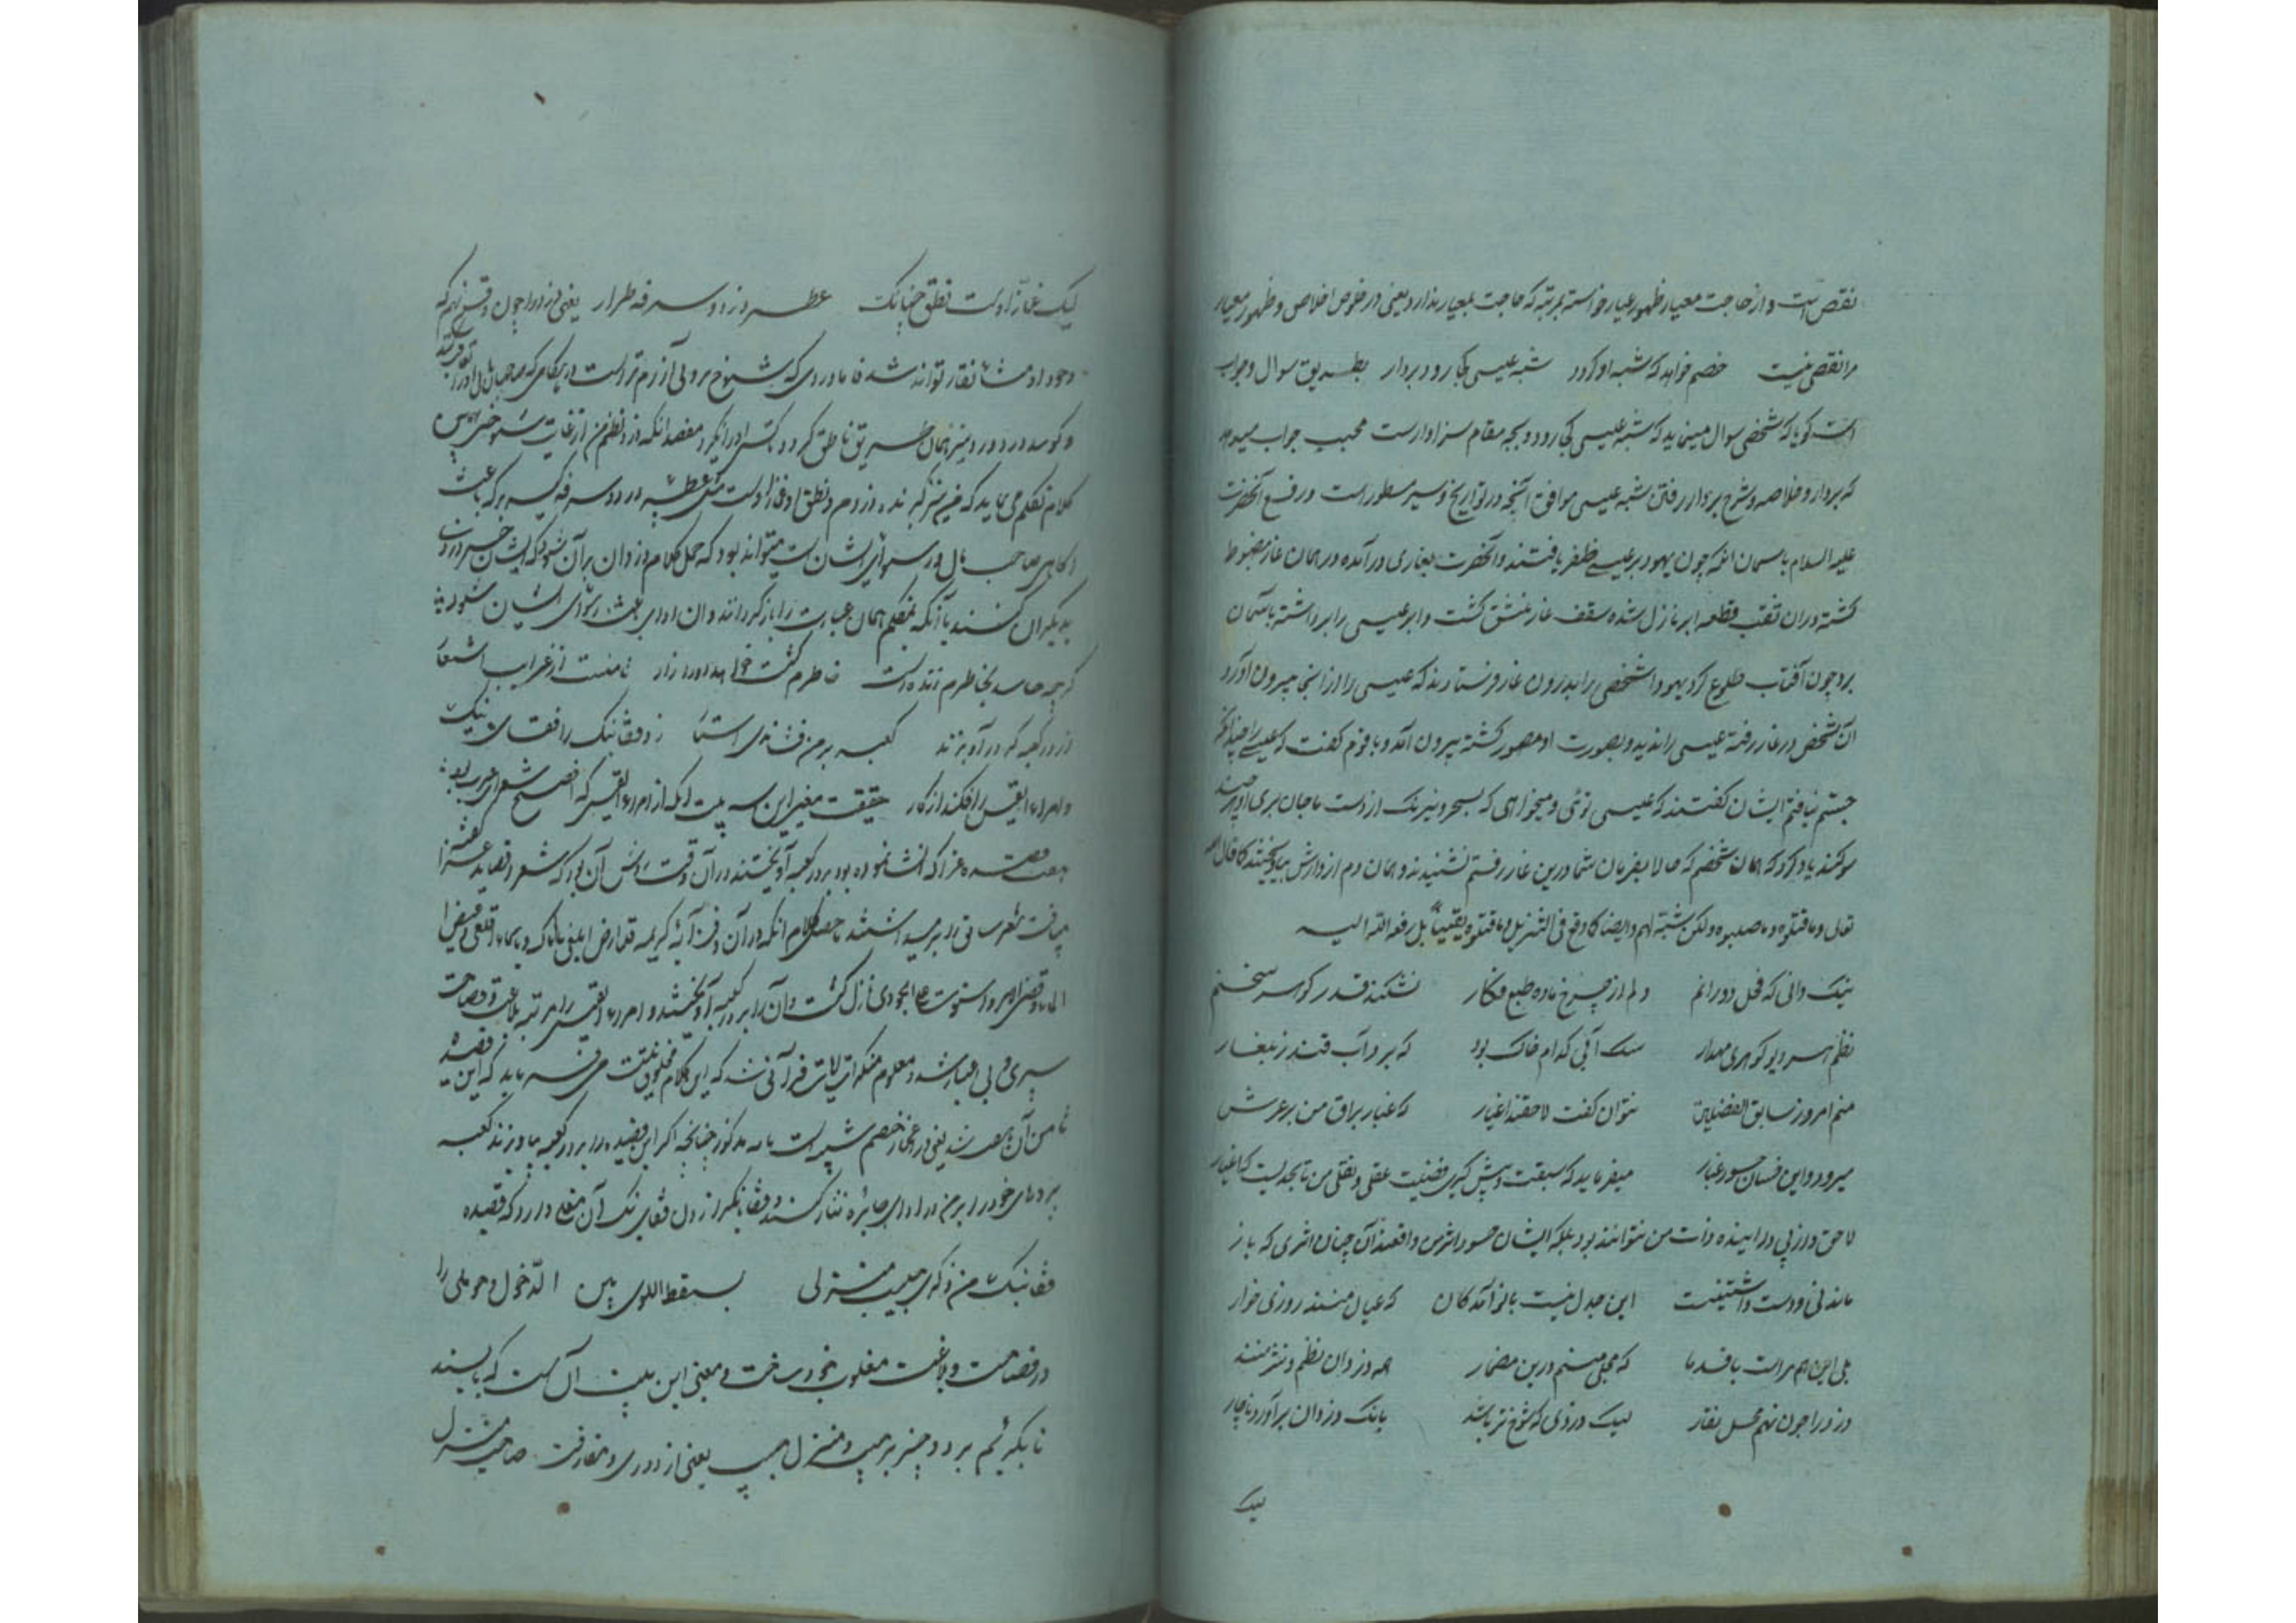 نقص است و از حاجت معیار ظهور عیار خواسته بمرتبه که حاجت بمعیار ندارد یعنی در خلوص اخلاص و ظهور معیار
مرا نقصی نیست خصم خواهد که شبه او گردد شبه عیسی کجا رود بردار بطریق سوال و جواب
است گویا که شخصی سوال مینماید که شبه عیسی کجا رود و بچه مقام سزاوارست مجیب جواب میدهد
که بردار و خلاصه و شرح بردار رفتن شبه عیسی موافق آنچه در تواریخ و سیر مسطور است در رفع آنحضرت
علیه السلام باسمان آنکه چون یهود بر عیسی ظفر یافتند و آنحضرت بغاری درآمده در همان غار مضبوط
گشته دران نقب قطعه ابر نازل شده سقف غار منشق گشت و ابر عیسی را برداشته باسمان
برد چون آفتاب طلوع کرد یهود شخصی را بدرون غار فرستادند که عیسی را از انجا بیرون آورد
آن شخص در غار رفته عیسی را ندید و بصورت او مصور گشته بیرون آمد و با قوم گفت که عیسی را
جستم نیافتم ایشان گفتند که عیسی توئی و میخواهی که بسحر و نیرنگ از دست ما جان بری او هرچند
سوگند یاد کرد که همان شخصم که حالا بفرمان شما درین غار رفتم نشنیدند و همان دم از دارش بیاویختند کما قال الله
تعالی و ما قتلوه و ما صلبوه و لکن شبه لهم و ایضا کما وقع فی التنزیل و ما قتلوه یقینا بل رفعه الله الیه
نیک دانی که فحل دورانم دلم از چرخ ماده طبع فکار نشکند قدر گوهر سخنم
نظم هر دیو گوهری مهدار سگ آبی که ام خاک بود که برد آب قندز بلغار
منم امروز سابق الفضلین نتوان گفت لاحقند اغیار که غبار براق من بر عرش
میرود و این خسان حسود غبار میفرماید که سبقت و پیش گیری فضیلت عقلی و نقلی من تا بحدیست که اغیار
لاحق و از پی دراینده ذات من نتوانند بود بلکه ایشان حسود اثر من واقعند آن چنان اثری که باز
ماند نی و دست واشتنیست این جدل نیست با نوآمدگان که عیال منند روزی خوار
بلی این هم مراست با قدما که مجلی منم درین مضمار همه دزدان نظم و نثر منند
دزد را چون نهم محل نقار لیک دزدی که شوخ تر باشد بانگ دزدان برآورد ناچار
لیک
لیک غماز اوست نطق چنانک عطسه دزد و سرفه طرار یعنی دزد را چون وقع نهم که
وجود او منشا نقار تواند شد فاما دزدی که شوخ بر ولی آزرم تر است در هنگامی که صاحب مال او را تعاقب کند
و گوید دزد دزد نیز همان طریق ناطق گردد تا کسی او را نگیرد مقصد انکه دزد نظم من از غایت شوخی
کلام تکلم می نماید که من نیز گیرنده دزدم و نطق او غماز اوست مثل عطسه دزد و سرفه کیسه بر که باعث
اگاهی صاحب مال و رسوائی ایشان است میتواند بود که حمل کلام دزدان بر آن شود که ایشان خبر
بدیگران کنند یا آنکه متکلم همان عبارت را باز گردانند و ان ادای باعث رسوائی ایشان شود
گرچه حاسد بخاطرم زنده است خاطرم کشت خواهد او را زار ثامنست از غرایب اشعار
از در کعبه گر درآویزند کعبه بر من فشاندی استار زد قفا نبک را قفای نیک
و امراء القیس را فکند از کار حقیقت معنی این سه بیت انکه از امراء القیس که افصح شعرای عرب بود
هفت قصیده غرا که انشا نموده بود بر در کعبه آویختند در آن وقت رسم آن بود که شعر و قصاید
الماء و قضی الامر و استوت علی الجودی نازل گشت و آن را بر در کعبه آویختند و امراء القیس را مرتبه بلاغت و فصاحت
سپری و بی اعتبار شد و معلوم منکران آیات قرآنی شد که این کلام مخلوق نیست می فرماید که این قصیده
ثامن آن هفت یعنی در اعجاز خصم است چنانچه اگر این قصیده را بر در کعبه بیاویزند کعبه
پردهای خود را بر من در ادای جایزه نثار کند و قفا نبک را زدن قفای نیک آن معنی دارد که قصیده
قفا نبک من ذکری حبیب و منزلی بسقط اللوی بین الدخول و حوملی را
در فصاحت و بلاغت مغلوب خود ساخت و معنی این بیت آن است که بایستید
تا بگریئم بر دو چیز بر حبیب و منزل حبیب یعنی از دوری و مفارقت صاحب منزل